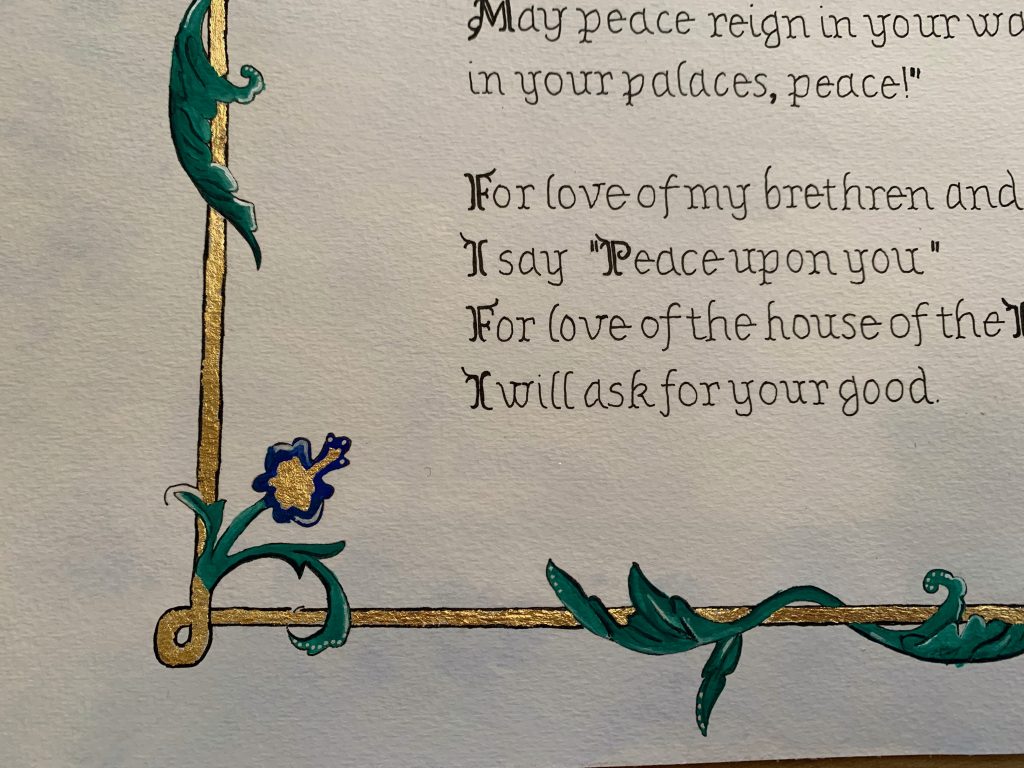 May peace reign in your
in your palaces, peace!"
For love of my brethren and
I say "Peace upon you"
For love of the house of the
I will ask for your good.